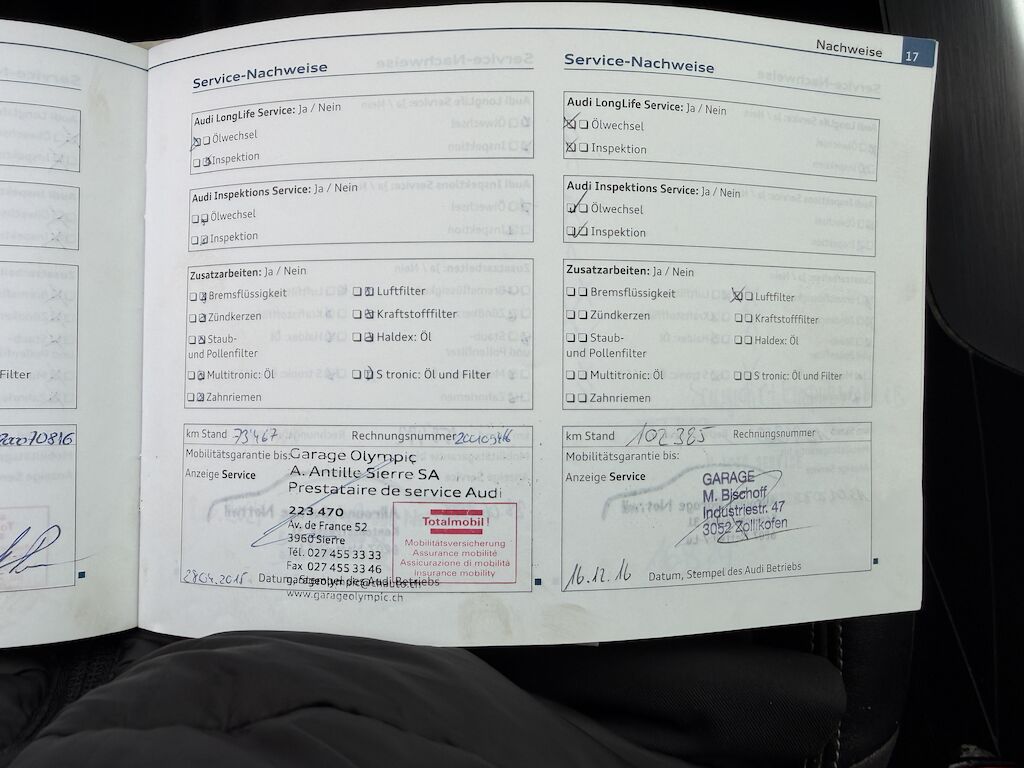 Nachweise 17
Filter
2000070816
Service-Nachweise
Audi LongLife Service: Ja / Nein
Ölwechsel
Inspektion
Audi Inspektions Service: Ja / Nein
Ölwechsel
Inspektion
Zusatzarbeiten: Ja / Nein
Bremsflüssigkeit Luftfilter
Zündkerzen Kraftstofffilter
Staub- Haldex: Öl
und Pollenfilter
Multitronic: Öl S tronic: Öl und Filter
Zahnriemen
km Stand 73'467 Rechnungsnummer
Mobilitätsgarantie bis:
Anzeige Service
Garage Olympic
A. Antille Sierre SA
Prestataire de service Audi
223 470
Av. de France 52
3960 Sierre
Tél. 027 455 33 33
Fax 027 455 33 46
www.garageolympic.ch
Totalmobil!
Mobilitätsversicherung
Assurance mobilité
Assicurazione di mobilità
Insurance mobility
28.04.2015 Datum, Stempel des Audi Betriebs
Service-Nachweise
Audi LongLife Service: Ja / Nein
Ölwechsel
Inspektion
Audi Inspektions Service: Ja / Nein
Ölwechsel
Inspektion
Zusatzarbeiten: Ja / Nein
Bremsflüssigkeit Luftfilter
Zündkerzen Kraftstofffilter
Staub- Haldex: Öl
und Pollenfilter
Multitronic: Öl S tronic: Öl und Filter
Zahnriemen
km Stand 102'385 Rechnungsnummer
Mobilitätsgarantie bis:
Anzeige Service
GARAGE
M. Bischoff
Industriestr. 47
3052 Zollikofen
16.12.16 Datum, Stempel des Audi Betriebs